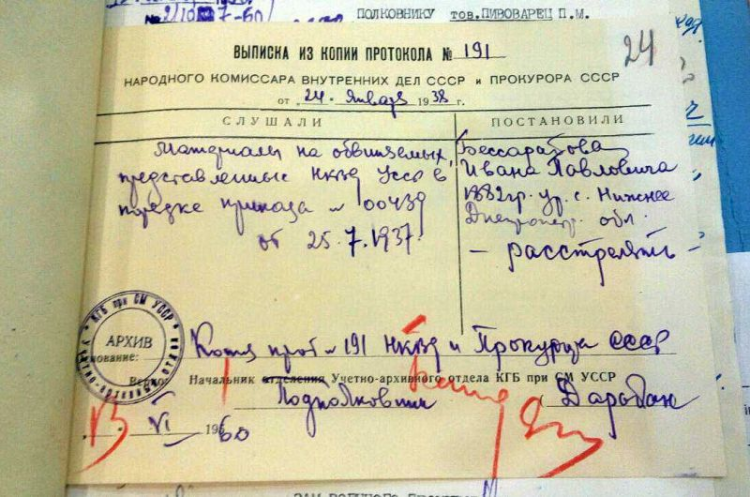 № 2/10 7-60
ПОЛКОВНИКУ тов.ПИВОВАРЕЦ П.М.
24
ВЫПИСКА ИЗ КОПИИ ПРОТОКОЛА № 191
НАРОДНОГО КОМИССАРА ВНУТРЕННИХ ДЕЛ СССР и ПРОКУРОРА СССР
от 24 января 1938 г.
СЛУШАЛИ
Материалы на обвиняемых,
представленные НКВД УССР в
порядке приказа № 00439
от 25.7.1937.
ПОСТАНОВИЛИ
Бессарабова
Ивана Павловича
1882 гр. ур. с. Нижнее
Днепропетр. обл.
— расстрелять
КГБ при СМ УССР
АРХИВ
Учетно-архивный
нование: Копия прот № 191 НКВД и Прокурора СССР
Верно: Начальник отделения Учетно-архивного отдела КГБ при СМ УССР
Подполковник (Дарабан
13 VI 1960